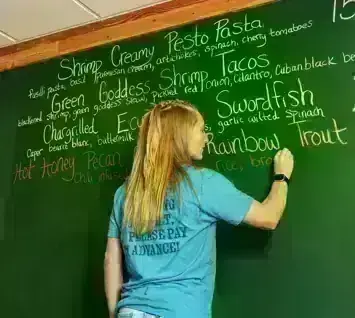 15
Shrimp Creamy Pesto Pasta
fusilli pasta, basil parmesan cream, artichokes, spinach, cherry tomatoes
Green Goddess Shrimp Tacos
blackened shrimp, green goddess slaw, pickled red onion, cilantro, Cuban black be
Chargrilled Swordfish
Caper beurre blanc, buttermilk garlic wilted spinach
Hot Honey Pecan Rainbow Trout
rice, bro
PLEASE PAY
ADVANCE!